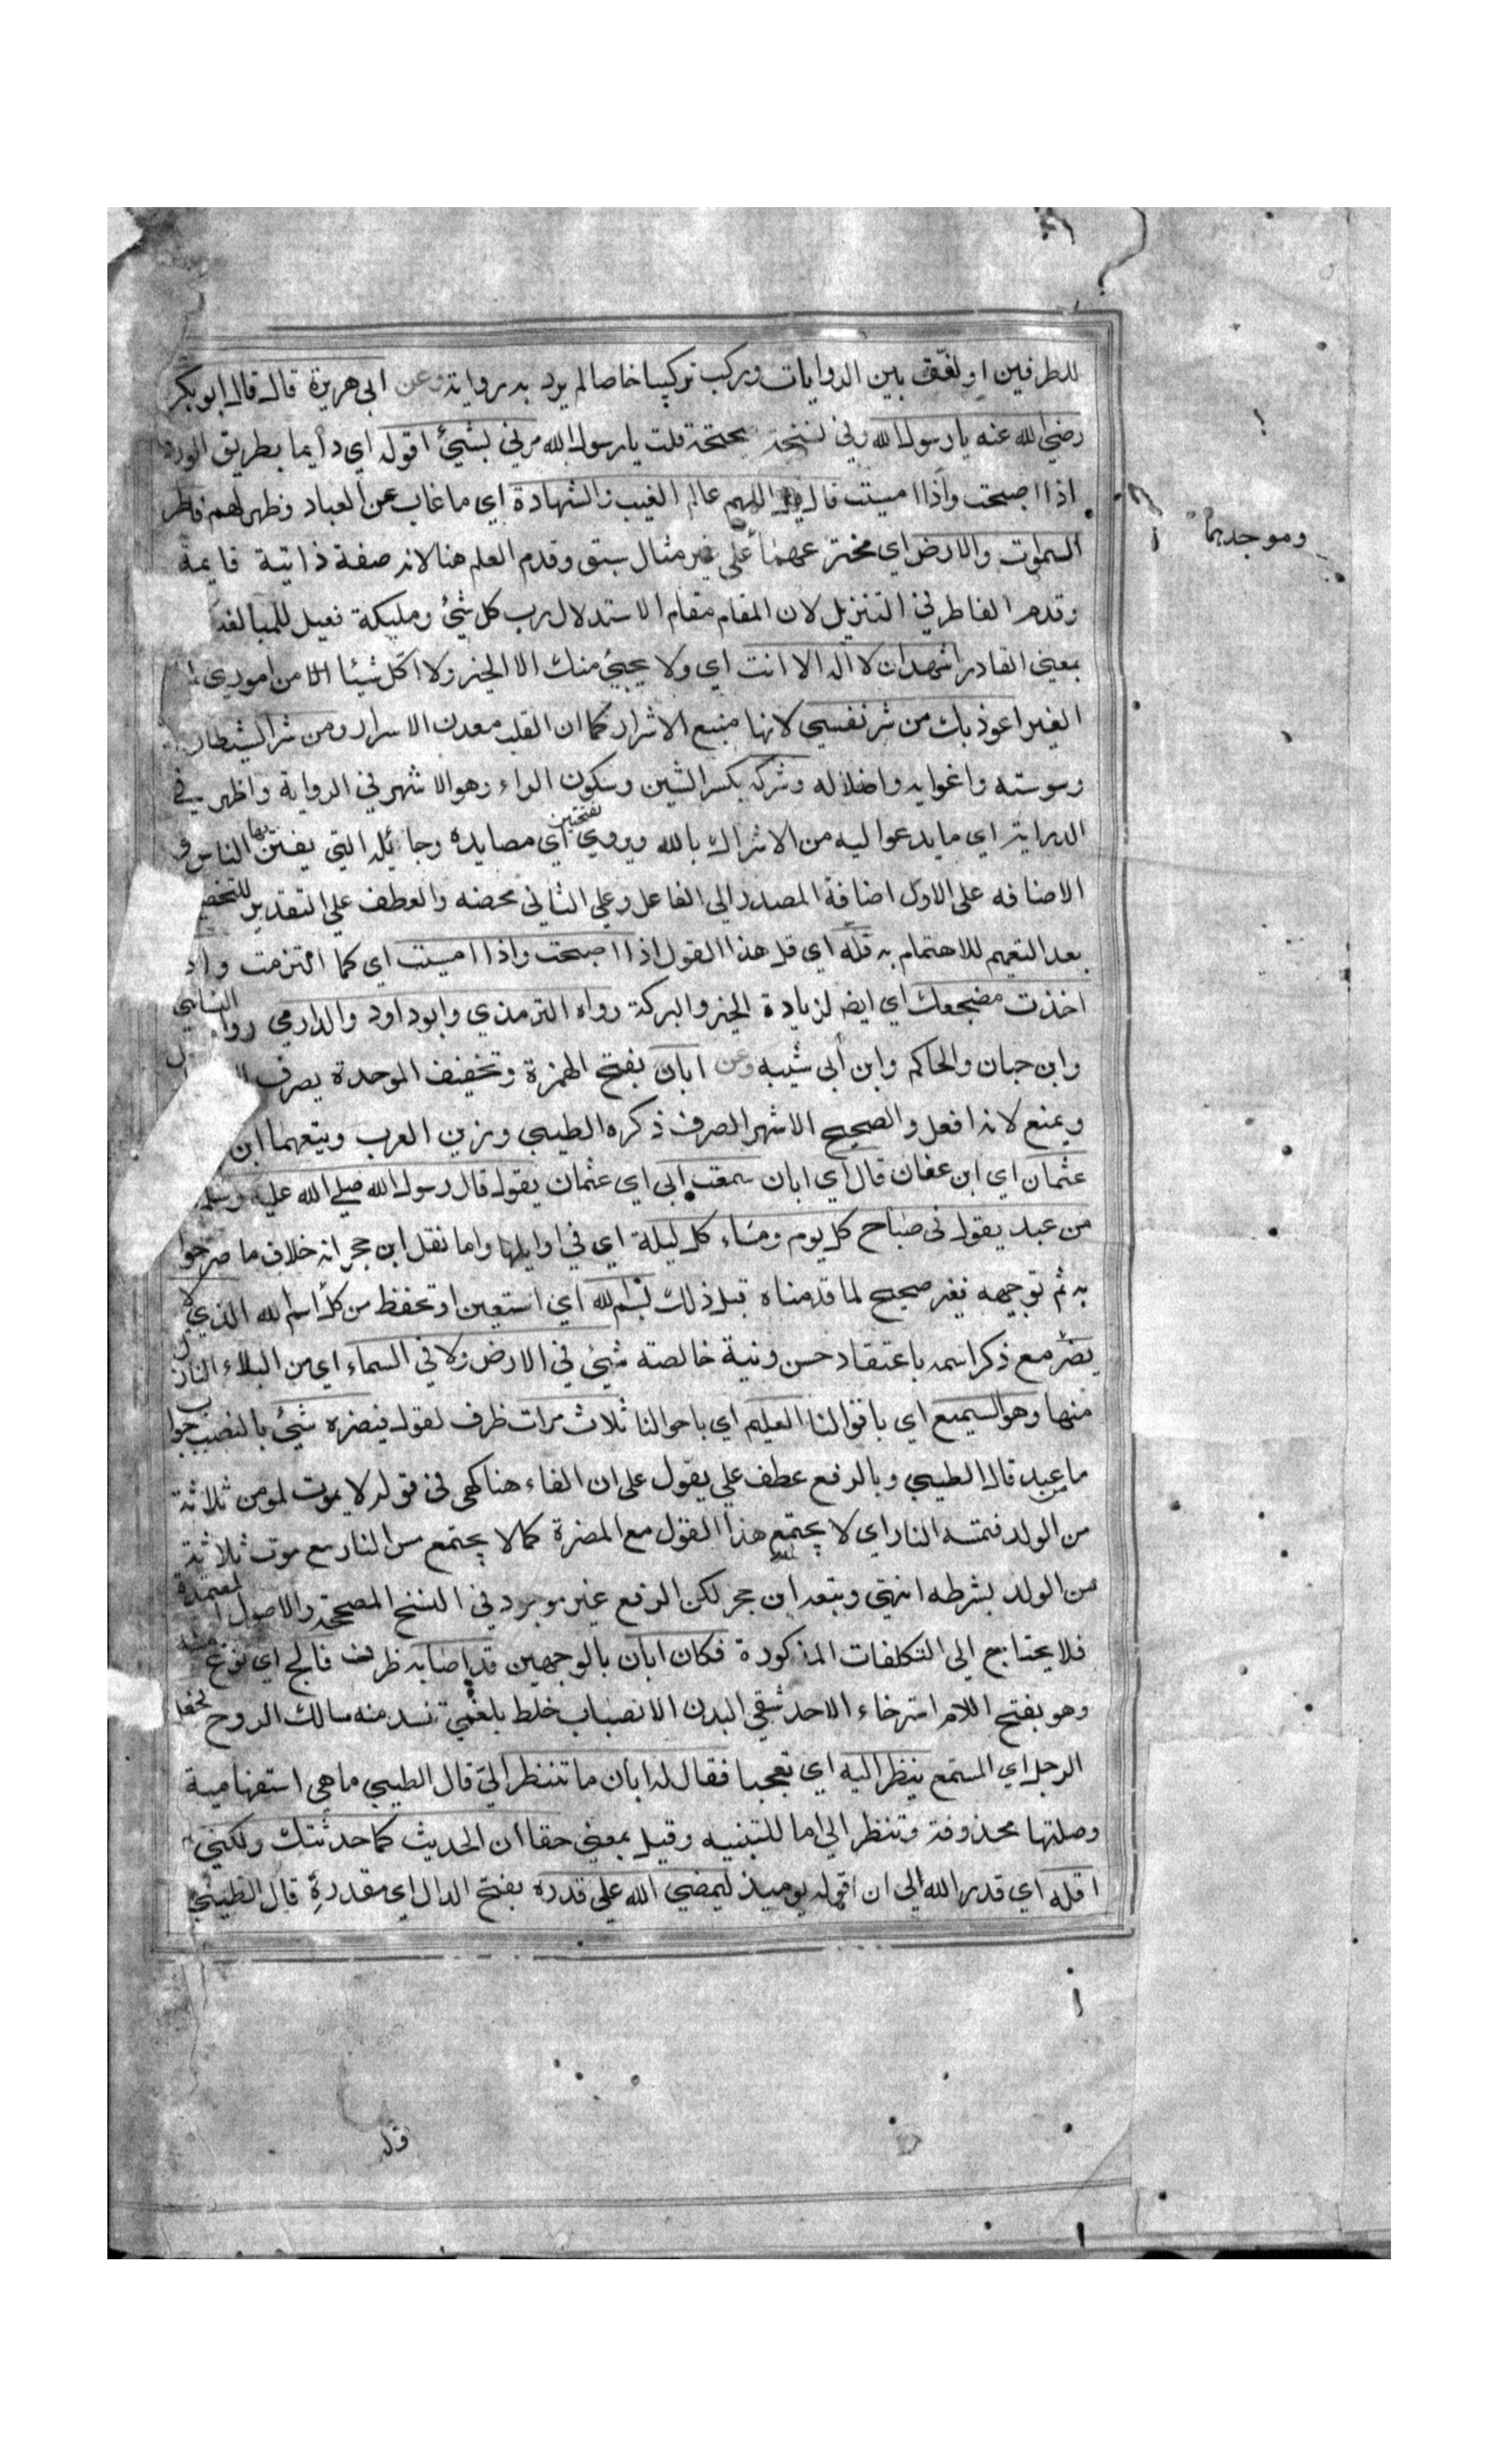 للطرفين او لفق بين الروايات وتركب تركيبا خاصا لم يرد به رواية وعن ابي هريرة قال قال ابو بكر
رضي الله عنه يا رسول الله وفي نسخة صحيحة قلت يا رسول الله مرني بشيئ اقوله اي دايما بطريق الورد
اذا اصبحت واذا امسيت قال قل اللهم عالم الغيب والشهادة اي ما غاب من العباد وظهر لهم فاطر
السموات والارض اي مخترعهما على غير مثال سبق وقدم العلم هنا لانه صفة ذاتية قايمة
وموجدهما
وقدم الفاطر في التنزيل لان المقام مقام الاستدلال رب كل شيئ ومليكه فعيل للمبالغة
بمعنى القادر اشهد ان لا اله الا انت اي ولا يجيئ منك الا الخير ولا اكل شيئا الا من اموري
الغير اعوذ بك من شر نفسي لانها منبع الاشرار كما ان القلب معدن الاسرار ومن شر الشيطان
وسوسته واغوايه واضلاله وشركه بكسر الشين وسكون الراء وهو الاشهر في الرواية واظهر في
الدراية اي ما يدعوا اليه من الاشراك بالله ويروي بفتحتين اي مصايده وحبائله التي يفتتن بها الناس و
الاضافه على الاول اضافة المصدر الى الفاعل وعلي الثاني محضه والعطف علي التقدير للتخصيص
بعد التعميم للاهتمام به قله اي قل هذا القول اذا اصبحت واذا امسيت اي كما التزمت واذا
اخذت مضجعك اي ايضا لزيادة الخير والبركة رواه الترمذي وابو داود والدارمي رواه النسايي
وابن حبان والحاكم وابن أبي شيبه وعن ابان بفتح الهمزة وتخفيف الموحدة يصرف
ويمنع لانه افعل والصحيح الاشهر الصرف ذكره الطيبي وزين العرب ويتبعهما ابن
عثمان اي ابن عفان قال اي ابان سمعت ابي اي عثمان يقول قال رسول الله صلى الله عليه وسلم
من عبد يقول في صباح كل يوم ومساء كل ليلة اي في اوايلها واما نقل ابن حجر انه خلاف ما صرحوا
به ثم توجيهه فغير صحيح لما قدمناه قبل ذلك بسم الله اي استعين او تحفظ من كل اسم الله الذي لا
يضر مع ذكر اسمه باعتقاد حسن ونية خالصة شيئ في الارض ولا في السماء اي من البلاء النازل
منها وهو السميع اي باقوالنا العليم اي باحوالنا ثلاث مرات ظرف لقوله فيضره شيئ بالنصب جواب
ما من عبد قال الطيبي وبالرفع عطف علي يقول على ان الفاء هنا كهي في قوله لا يموت لمومن ثلاثة
من الولد فتمسه النار اي لا يجتمع هذا القول مع المضرة كما لا يجتمع مس النار مع موت ثلاثة
من الولد بشرطه انتهي وتبعه ابن حجر لكن الرفع غير موجود في النسخ المصححة والاصول المعتمدة
فلا يحتاج الى التكلفات المذكورة فكان ابان بالوجهين قد اصابه ظرف فالج اي نوع منه
وهو بفتح اللام استرخاء لاحد شقي البدن لانصباب خلط بلغمي تنسد منه مسالك الروح فجعل
الرجل اي المستمع ينظر اليه اي تعجبا فقال له ابان ما تنظر الي قال الطيبي ما هي استفهامية
وصلتها محذوفة وتنظر الي اما للتنبيه وقيل بمعنى حقا ان الحديث كما حدثتك ولكني لم
اقله اي قدر الله الي ان اقوله يوميذ ليمضي الله علي قدره بفتح الدال اي مقدره قال الطيبي
قوله